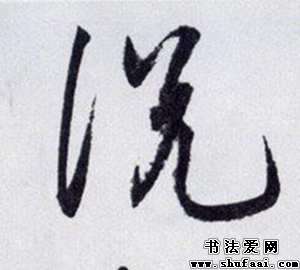 说
书法爱网
www.shufaai.com